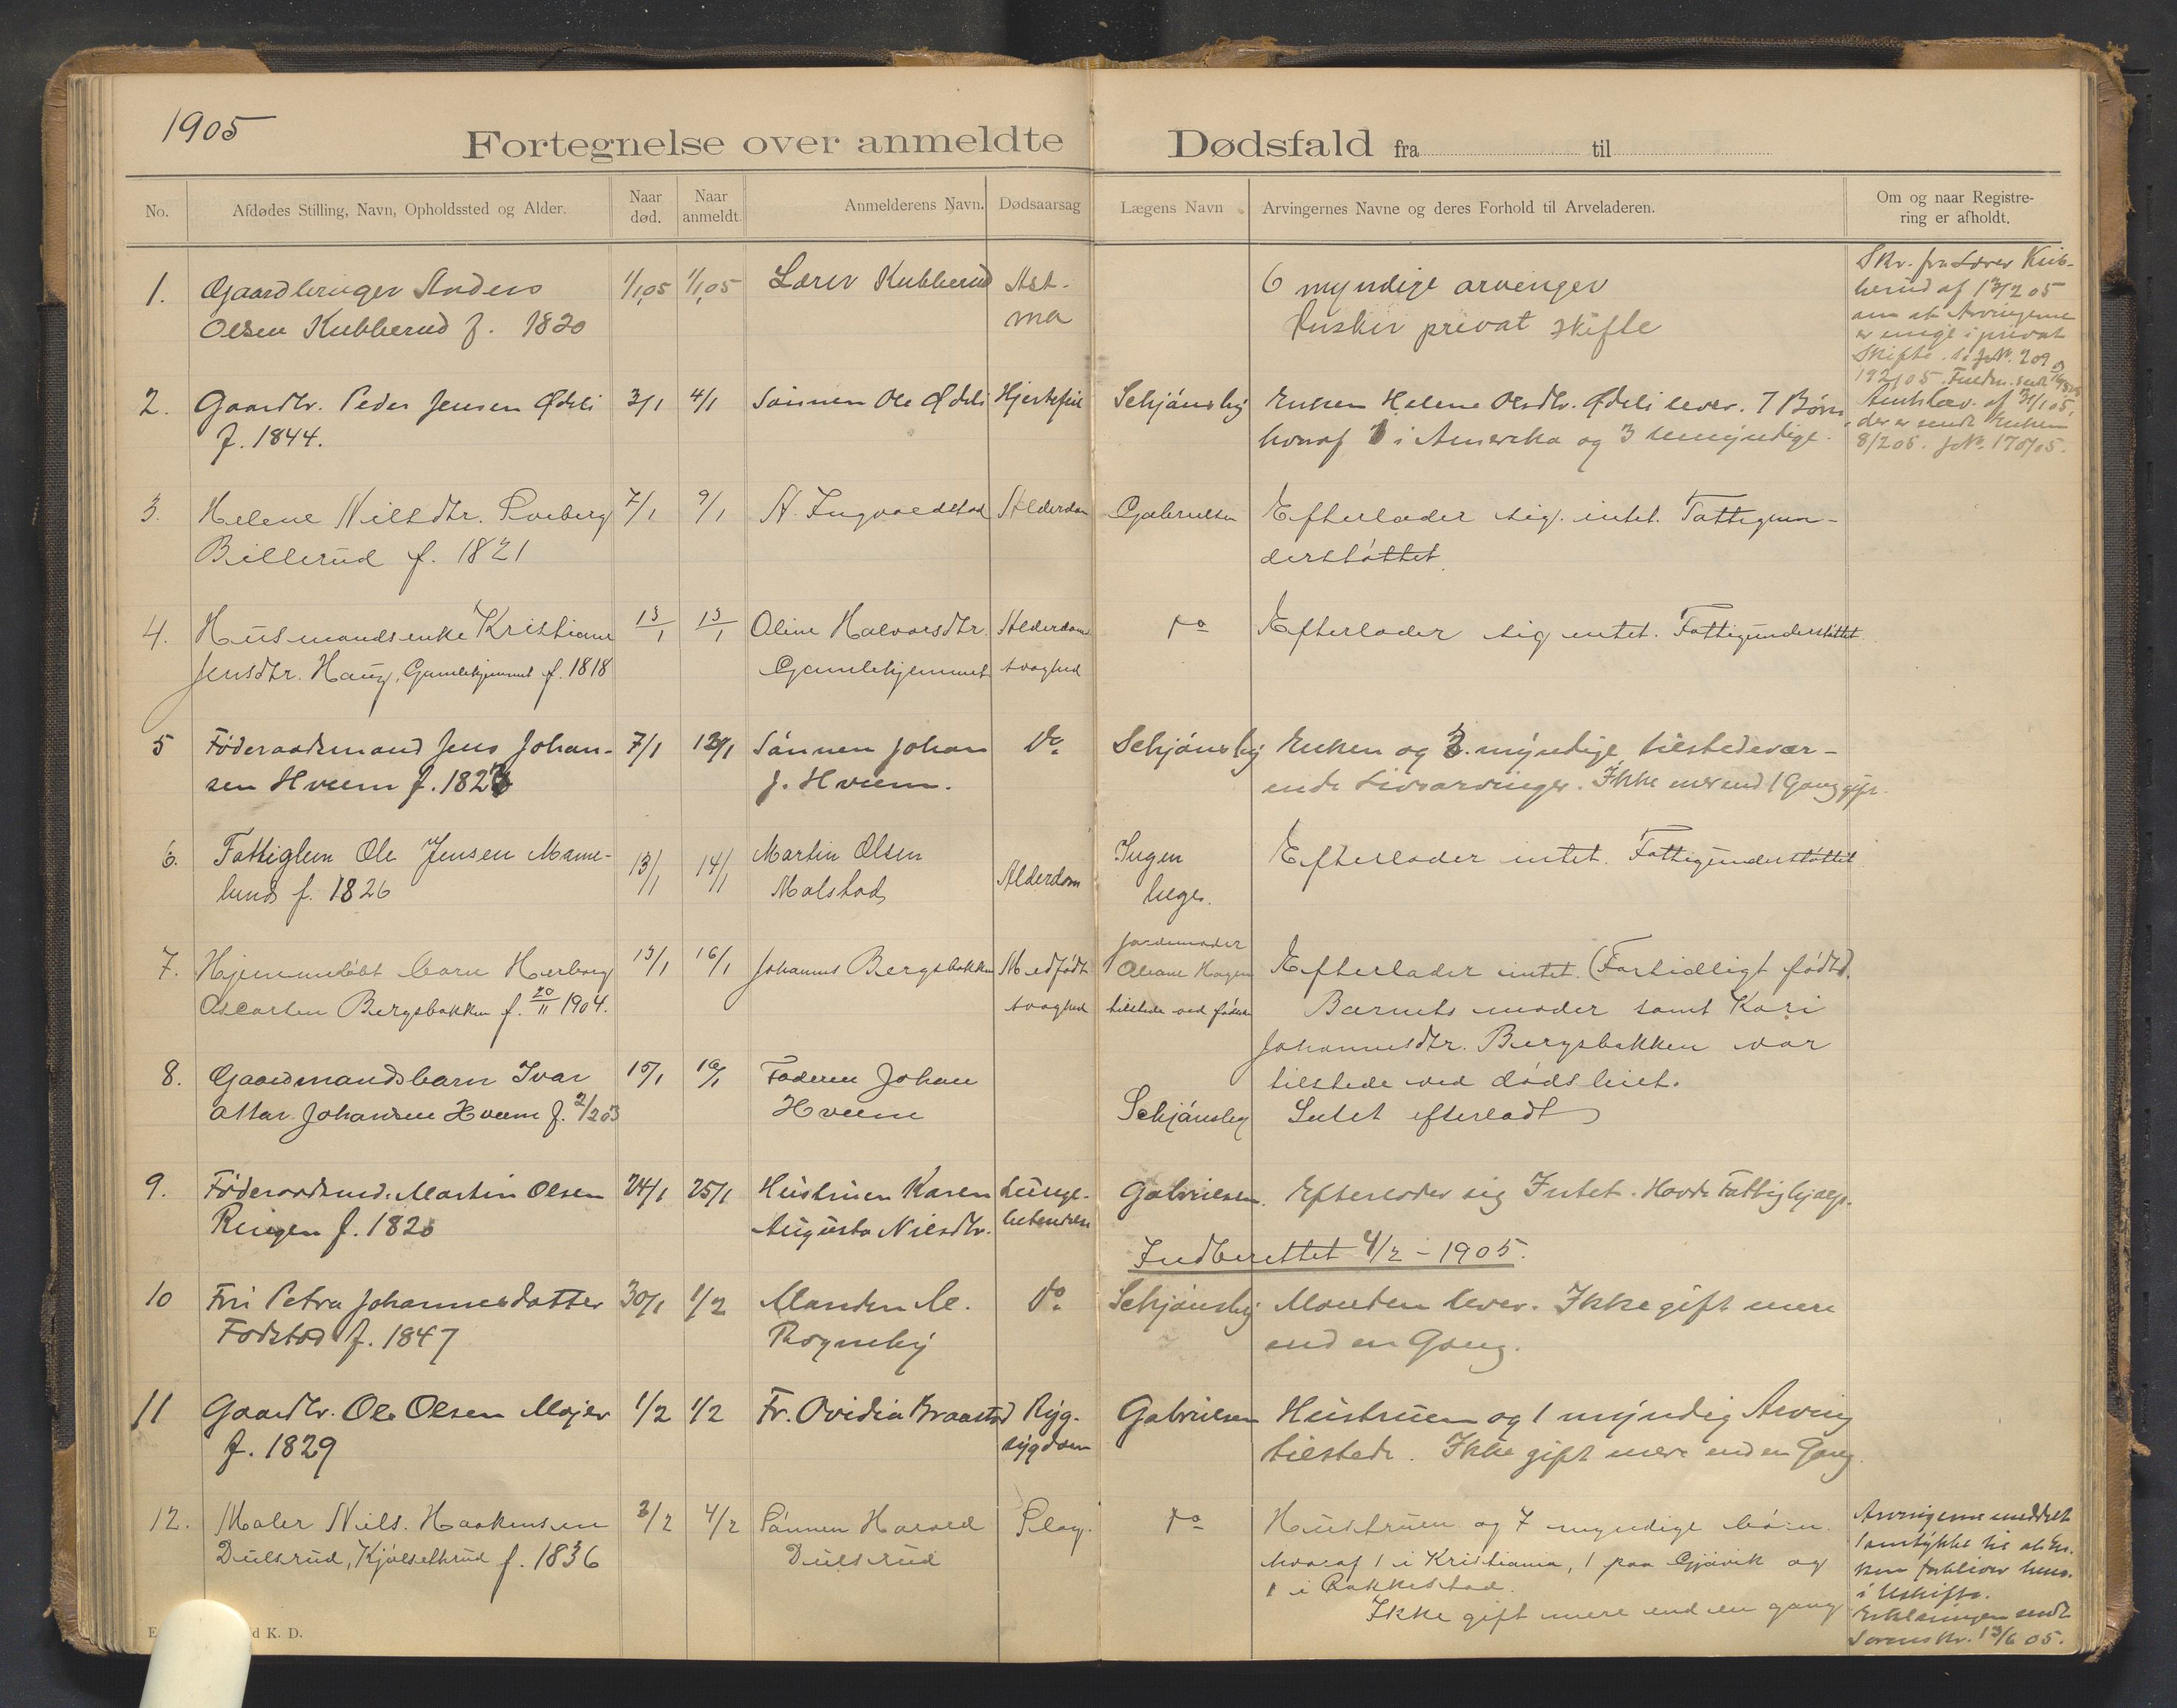 1905
Fortegnelse over anmeldte Dødsfald fra til
No.
Afdødes Stilling, Navn, Opholdssted og Alder.
Naar død.
Naar anmeldt.
Anmelderens Navn.
Dødsaarsag
Lægens Navn
Arvingernes Navne og deres Forhold til Arveladeren.
Om og naar Registre-
ring er afholdt.
1. Gaardbruger Anders 1/1,05 1/1,05 Lærer Kubberud Ast- 6 myndige arvinger
Olsen Kubberud f. 1820 ma Ønsker privat skifte
Skr. fra Lærer Kub-
berud af 13/2 05
om at Arvingerne
er enige i privat
Skifte. JN. 209
192/05.
2. Gaardbr. Peder Jensen Ødeli 3/1 4/1 Sønnen Ole Ødeli Hjertefeil Schjønsby Enken Helene Olsdtr. Ødeli lever. 7 Børn
f. 1844. hvoraf 1 i Amerika og 3 umyndige.
af 31/1 05,
der er sendt Enken
8/2 05. JN. 170/05.
3. Helene Nilsdtr. Sveberg 7/1 9/1 A. Ingvoldstad Alderdom Gabrielsen Efterlader sig intet. Fattigun-
Billerud f. 1821 derstøttet.
4. Husmandsenke Kristiane 13/1 13/1 Oline Halvorsdtr. Alderdoms do Efterlader sig intet. Fattigunderstøttet.
Jensdtr. Haug, Gamlehjemmet f. 1818 Gamlehjemmet svaghed
5 Føderaadsmand Jens Johan- 7/1 12/1 Sønnen Johan do Schjønsby Enken og 3 myndige tilstedevær-
sen Hveem f. 182 J. Hveem. ende Livsarvinger. Ikke mer end 1 Gang gift.
6. Fattiglem Ole Jensen Mame- 13/1 14/1 Martin Olsen Ingen Efterlader intet. Fattigunderstøttet
lund f. 1826 Malstad Alderdom læge.
7. Hjemmedøbt barn Herborg 13/1 16/1 Johannes Bergsbakken Medfødt Jordemoder
Oliane Hagen Efterlader intet. (Fortidligt født).
Oscarsen Bergsbakken f. 20/11 1904. svaghed tilstede ved fødsel Barnets moder samt Kari
Johannesdtr. Bergsbakken var
tilstede ved dødsleiet.
8. Gaardmandsbarn Ivar 15/1 16/1 Faderen Johan
Ottar Johansen Hveem f. 2/2 03 Hveem Schjønsby Intet efterladt
9. Føderaadsmd. Martin Olsen 24/1 25/1 Hustruen Karen Lunge- Gabrielsen. Efterlader sig Intet. Havde Fattighjælp.
Ringen f. 1820 Augusta Nilsdtr. betendelse
Indberettet 4/2 - 1905.
10 Fru Petra Johannesdatter 30/1 1/2 Manden M. do Schjønsby Manden lever. Ikke gift mere
Fodstad f. 1847 Rognsby end en Gang.
11 Gaardbr. Ole Olsen Majer 1/2 1/2 Fr. Ovidia Braastad Ryg- Gabrielsen Hustruen og 1 myndig Arving
f. 1829 sygdom tilstede. Ikke gift mere end en Gang.
12. Maler Nils Haakensen 3/2 4/2 Sønnen Harald Slag. do Hustruen og 7 myndige børn.
Dulsrud, Kjølselhrud f. 1836 Dulsrud hvoraf 1 i Kristiania, 1 paa Gjøvik og
1 i Rakkestad.
Ikke gift mere end en gang
Arvingerne meddelt
Samtykke til at En-
ken forbliver hens.
i Uskifte.
Erklæringen sendt
Sorenskr. 13/6 05.
d K. D.